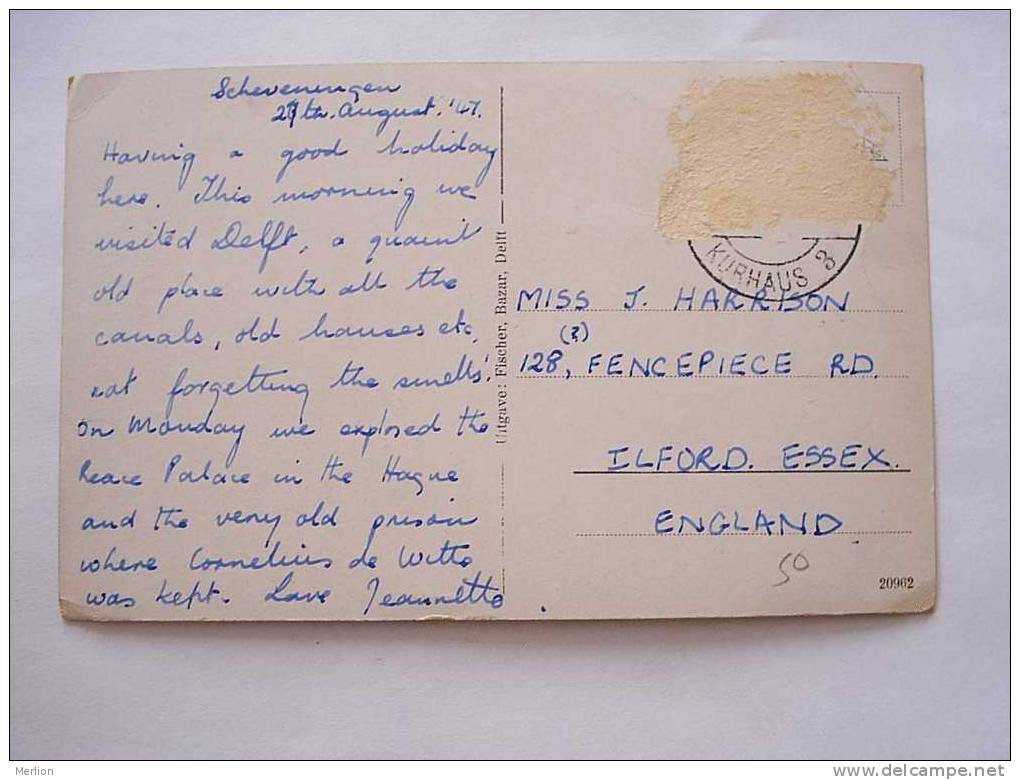 Scheveningen
August. '47.
Having a good holiday
here. This morning we
visited Delft, a quaint
old place with all the
canals, old houses etc,
not forgetting the smells!
On Monday we explored the
Peace Palace in the Hague
and the very old prison
where Cornelius de Witte
was kept. Love Jeannette.
Uitgave: Fischer, Bazar, Delft
KURHAUS 3
MISS J. HARRISON
(?)
128, FENCEPIECE RD.
ILFORD. ESSEX.
ENGLAND.
50
20962
Merlion
http://www.delcampe.net